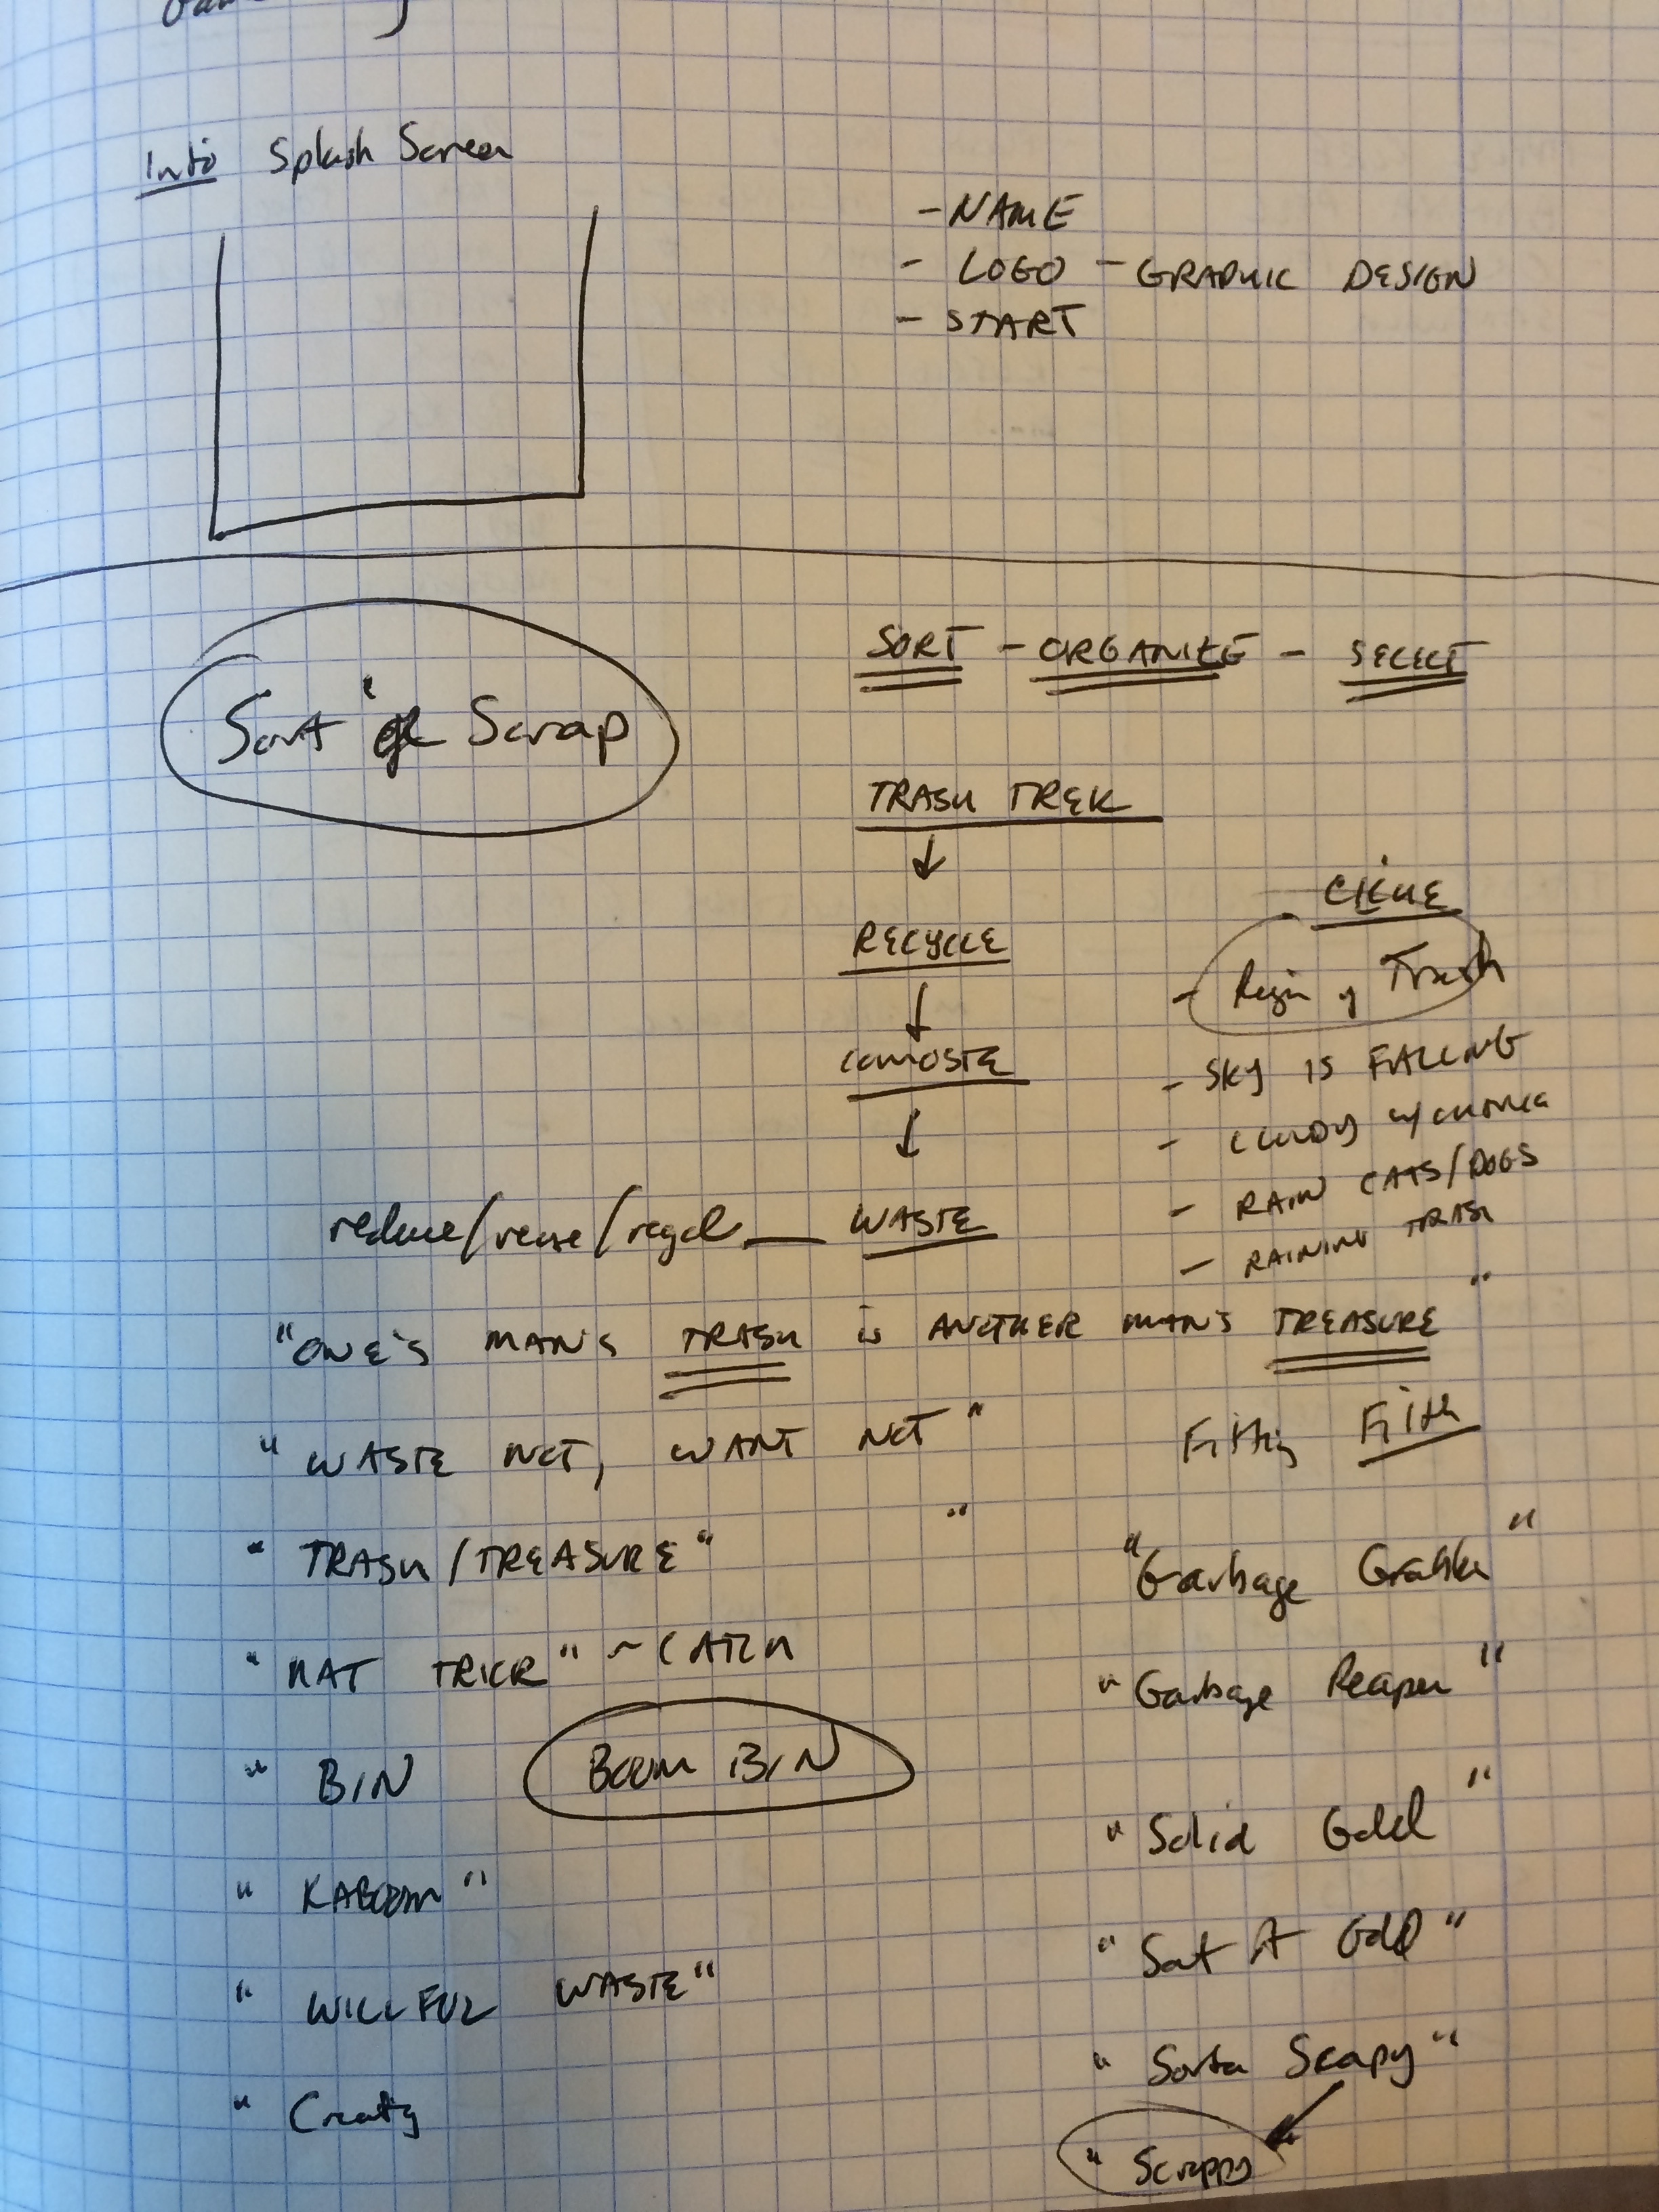 Intro Splash Screen
- NAME
- LOGO - GRAPHIC DESIGN
- START
SORT - ORGANIZE - SELECT
Sort Scrap
TRASH TREK
RECYCLE
CLICHE
- Reign of Trash
COMOSTE
- SKY IS FALLING
- CLOUDY w/ CHANCE
- RAIN CATS/DOGS
- RAINING TRASH
reduce/reuse/ WASTE
"ONE'S MAN'S TRASH is ANOTHER MAN'S TREASURE"
"WASTE NOT, WANT NOT"
Filthy Filth
"TRASH/TREASURE"
"
"Garbage Grabber"
"HAT TRICK" ~ CATCH
"Garbage Reaper"
" BIN
BOOM BIN
"Solid Gold"
"KABOOM"
"Sort A Gold"
"WILLFUL WASTE"
"Sorta Scrapy"
"
"Scrappy